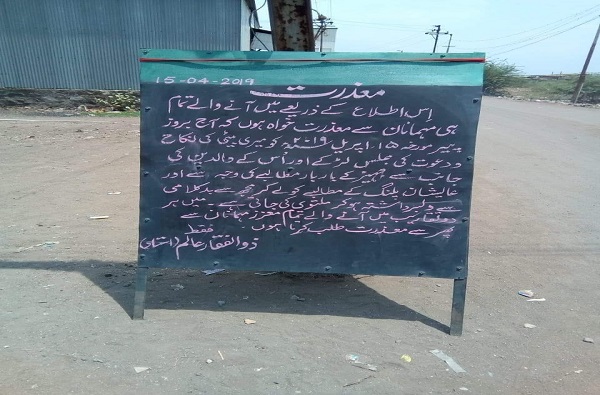 15-04-2019
معذرت
اِس اطلاع کے ذریعے میں آنے والے تمام
ہی مہمانان سے معذرت خواہ ہوں کہ آج بروز
پیر مورخہ ۱۵، اپریل ۲۰۱۹ کو میری بیٹی کی نکاح
و دعوت کی مجلس لڑکے اور اُس کے والدین کی
جانب سے جہیز کے بار بار مطالبے کی وجہ سے اور
عالیشان پلنگ کے مطالبے کو لے کر مجھ سے بدکلامی
سے دلبرداشتہ ہو کر ملتوی کی جاتی ہے۔ میں ہر
میں آنے والے تمام معزز مہمانان سے
پھر سے معذرت طلب کرتا ہوں۔
فقط
ذوالفقار عالم